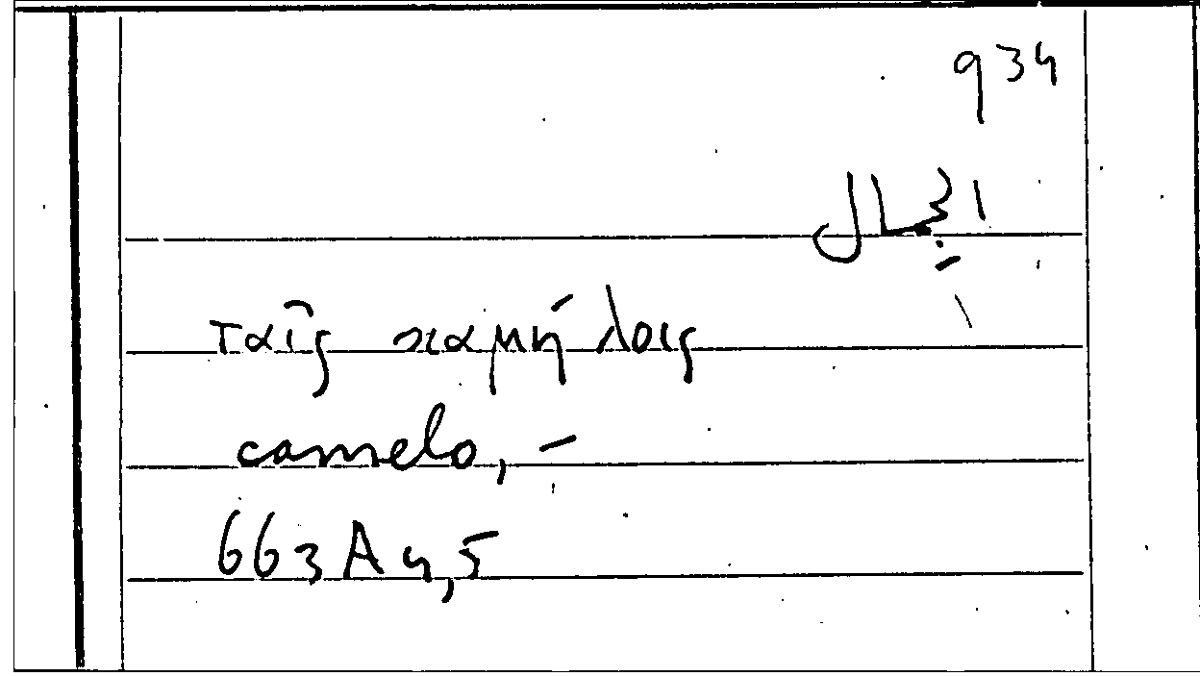 934
الجمال
ταῖς καμήλοις
camelo, –
663 A 4, 5